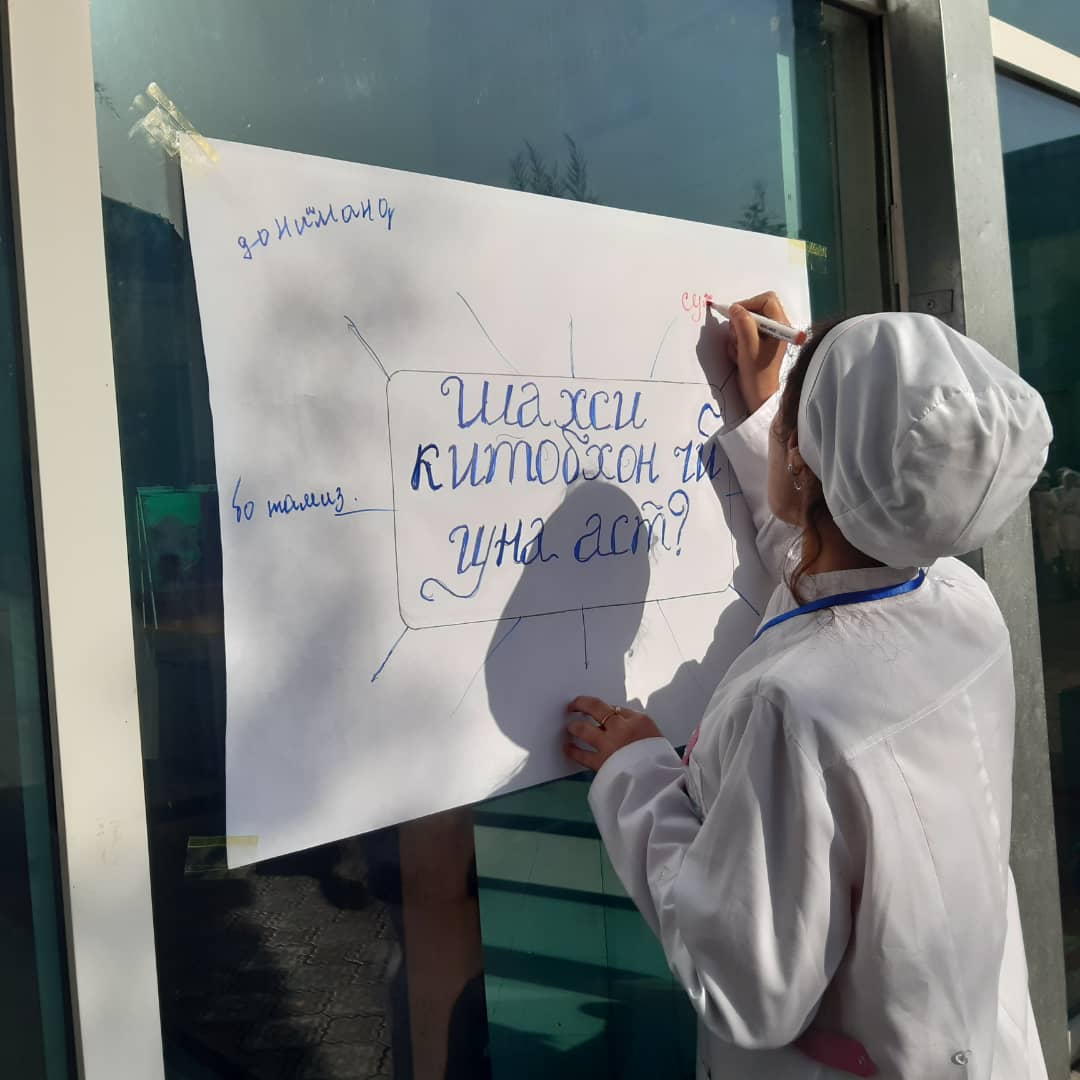 донишманд
су
Шахси
китобхон чӣ
гуна аст?
бо тамиз.